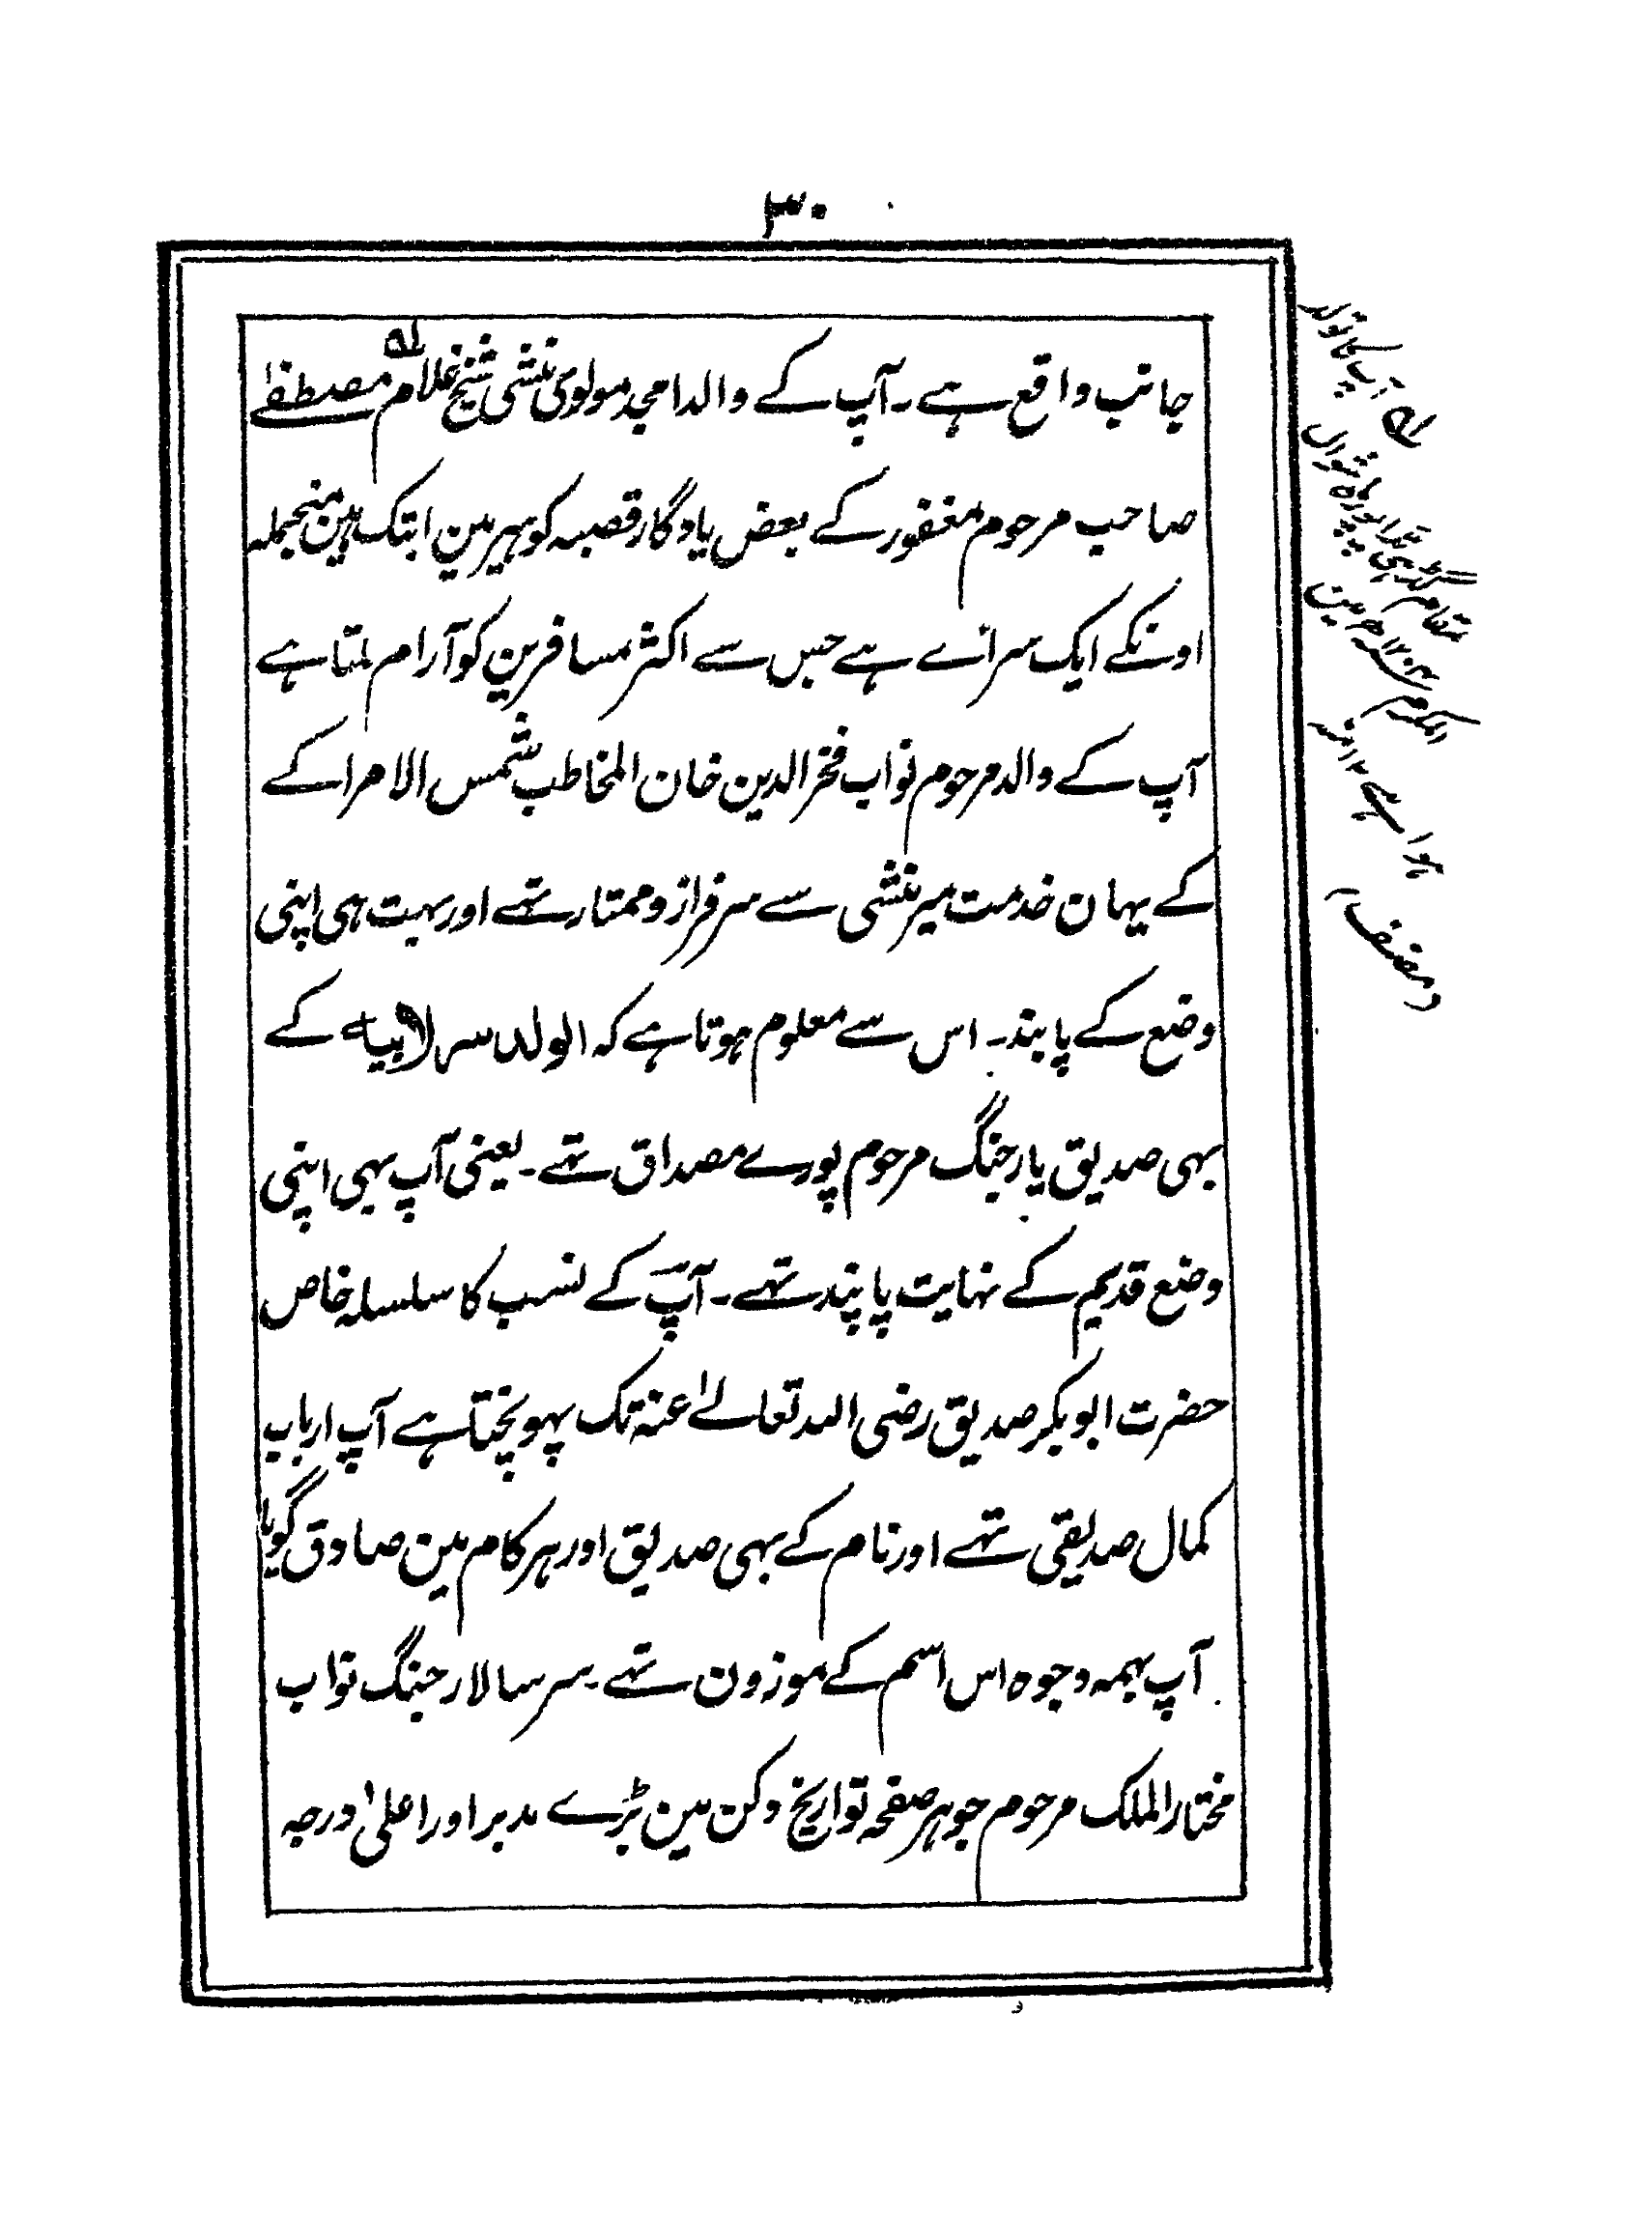 ۳۰
جانب واقع ہے۔ آپ کے والد امجد مولوی منشی شیخ غلام مصطفےٰ
صاحب مرحوم مغفور کے بعض یادگار قصبہ کوہیر مین ابتک ہین منجملہ
اونکے ایک سرائے ہے جس سے اکثر مسافرین کو آرام ملتا ہے
آپ کے والد مرحوم نواب فخر الدین خان المخاطب شمس الامرا کے
کے یہان خدمت میر منشی سے سرفراز و ممتاز تہے اور بہت ہی اپنی
وضع کے پابند۔ اس سے معلوم ہوتا ہے کہ الولد سر لابیہ کے
بہی صدیق یار جنگ مرحوم پورے مصداق تہے۔ یعنی آپ بہی اپنی
وضع قدیم کے نہایت پابند تہے۔ آپ کے نسب کا سلسلہ خاص
حضرت ابوبکر صدیق رضی اللہ تعالےٰ عنہ تک پہونچتا ہے آپ ارباب
کمال صدیقی تہے اور نام کے بہی صدیق اور ہر کام مین صادق گویا
آپ بہمہ وجوہ اس اسم کے موزون تہے۔ سر سالار جنگ نواب
مختار الملک مرحوم جوہر صفحہ تواریخ دکن مین بڑے مدبر اور اعلیٰ درجہ
لہ آپ کا تولد
بمقام ماہ شوال
المکرم مین
ہوا ہے ۱۲ منہ
مصنف